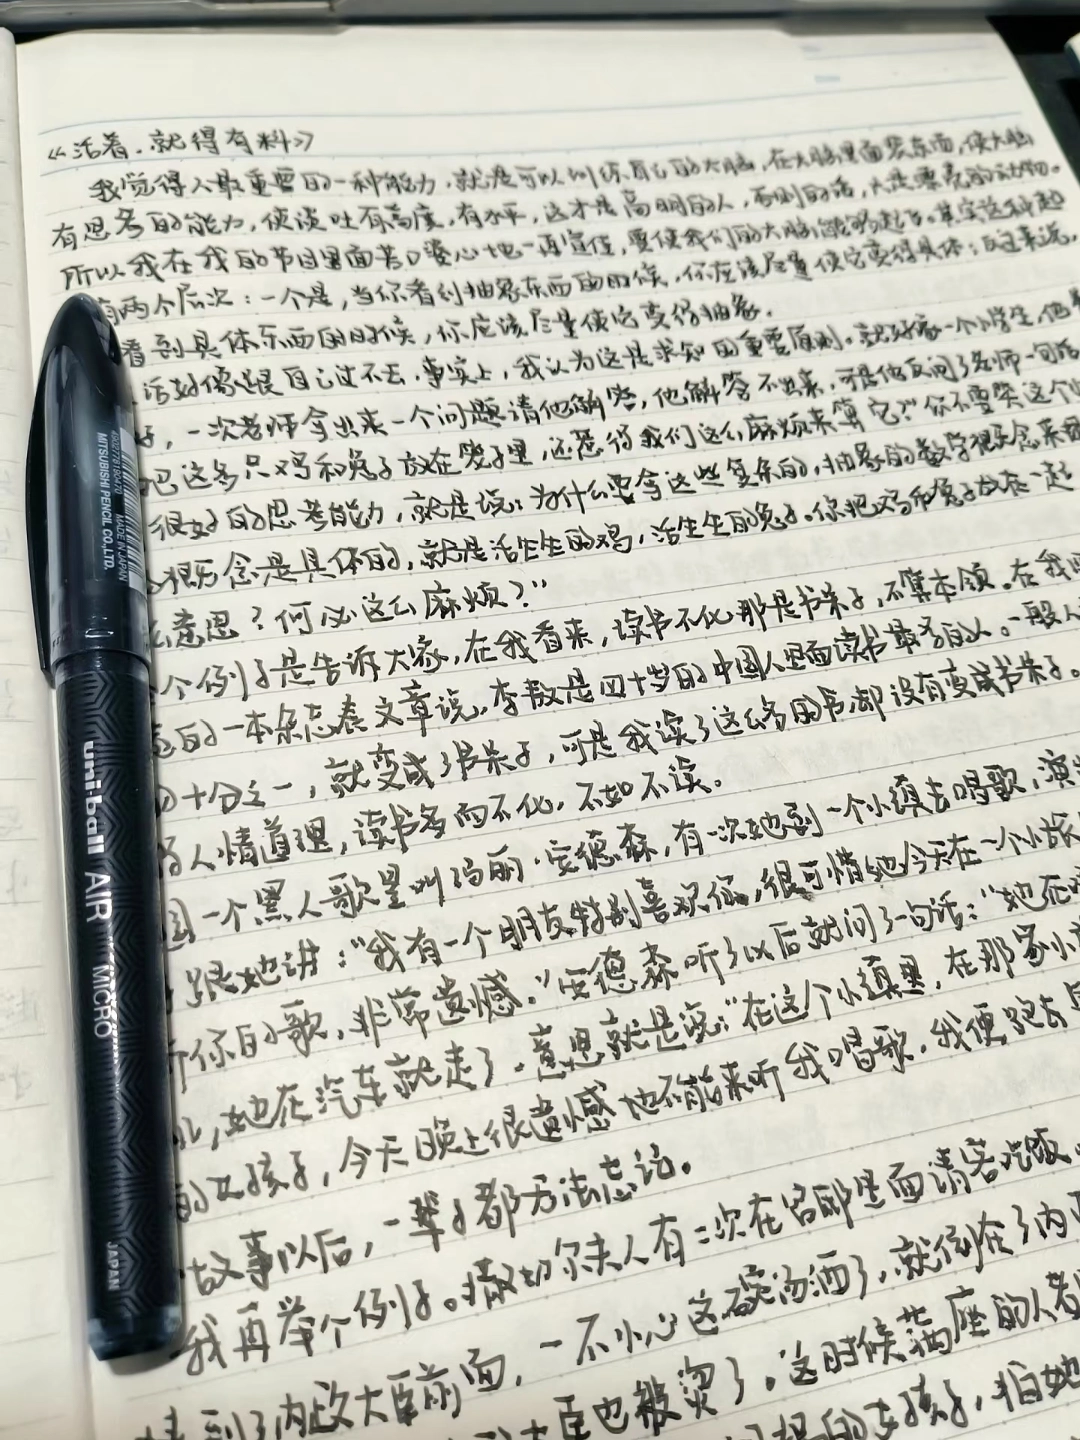 《活着,就得有料》
我觉得人最重要的一种能力,就是可以训练自己的大脑,在大脑里面装东西,使大脑
有思考的能力,使谈吐有高度,有水平,这才是高明的人,否则的话,大是漂亮的动物。
所以我在我的节目里面苦口婆心地一再宣传,要使我们的大脑能够起飞。其实这种起
有两个层次:一个是,当你看到抽象东西的时候,你应该尽量使它变得具体;反过来说,
看到具体东西的时候,你应该尽量使它变得抽象。
话好像是跟自己过不去,事实上,我认为这是求知的重要原则。就好像一个小学生,他
,一次老师拿出来一个问题请他解答,他解答不出来,可是他反问了老师一句话
把这多只鸡和兔子放在笼子里,还惹得我们这么麻烦来算它?”你不要笑这个
很好的思考能力,就是说:为什么要拿这些复杂的,抽象的数字概念来
概念是具体的,就是活生生的鸡,活生生的兔子。你把鸡和兔子放在一起
意思?何必这么麻烦?”
个例子是告诉大家,在我看来,读书不化那是书呆子,不算本领。在我
的一本杂志发文章说,李敖是四十岁的中国人里面读书最多的人。一般人
十分之一,就变成了书呆子,可是我读了这么多的书,却没有变成书呆子。
人情道理,读书多而不化,不如不读。
国一个黑人歌星叫玛丽·安德森,有一次她到一个小镇去唱歌,演
跟她讲:“我有一个朋友特别喜欢你,很可惜她今天在一个小旅
听你的歌,非常遗憾。”安德森听了以后就问了一句话:“她在
,她在汽车就走了。意思就是说:“在这个小镇里,在那家小
的女孩子,今天晚上很遗憾她不能来听我唱歌,我便跑去
故事以后,一辈子都方法忘记。
我再举个例子。撒切尔夫人有一次在官邸里面请客吃饭
一不小心这碗汤洒了,就倒在了内
到了内政大臣前面,
大臣也被烫了。这时候满座的人都
的女孩子,怕她
4902778190470 MADE IN JAPAN
MITSUBISHI PENCIL CO.,LTD.
uni-ball AIR MICRO
JAPAN